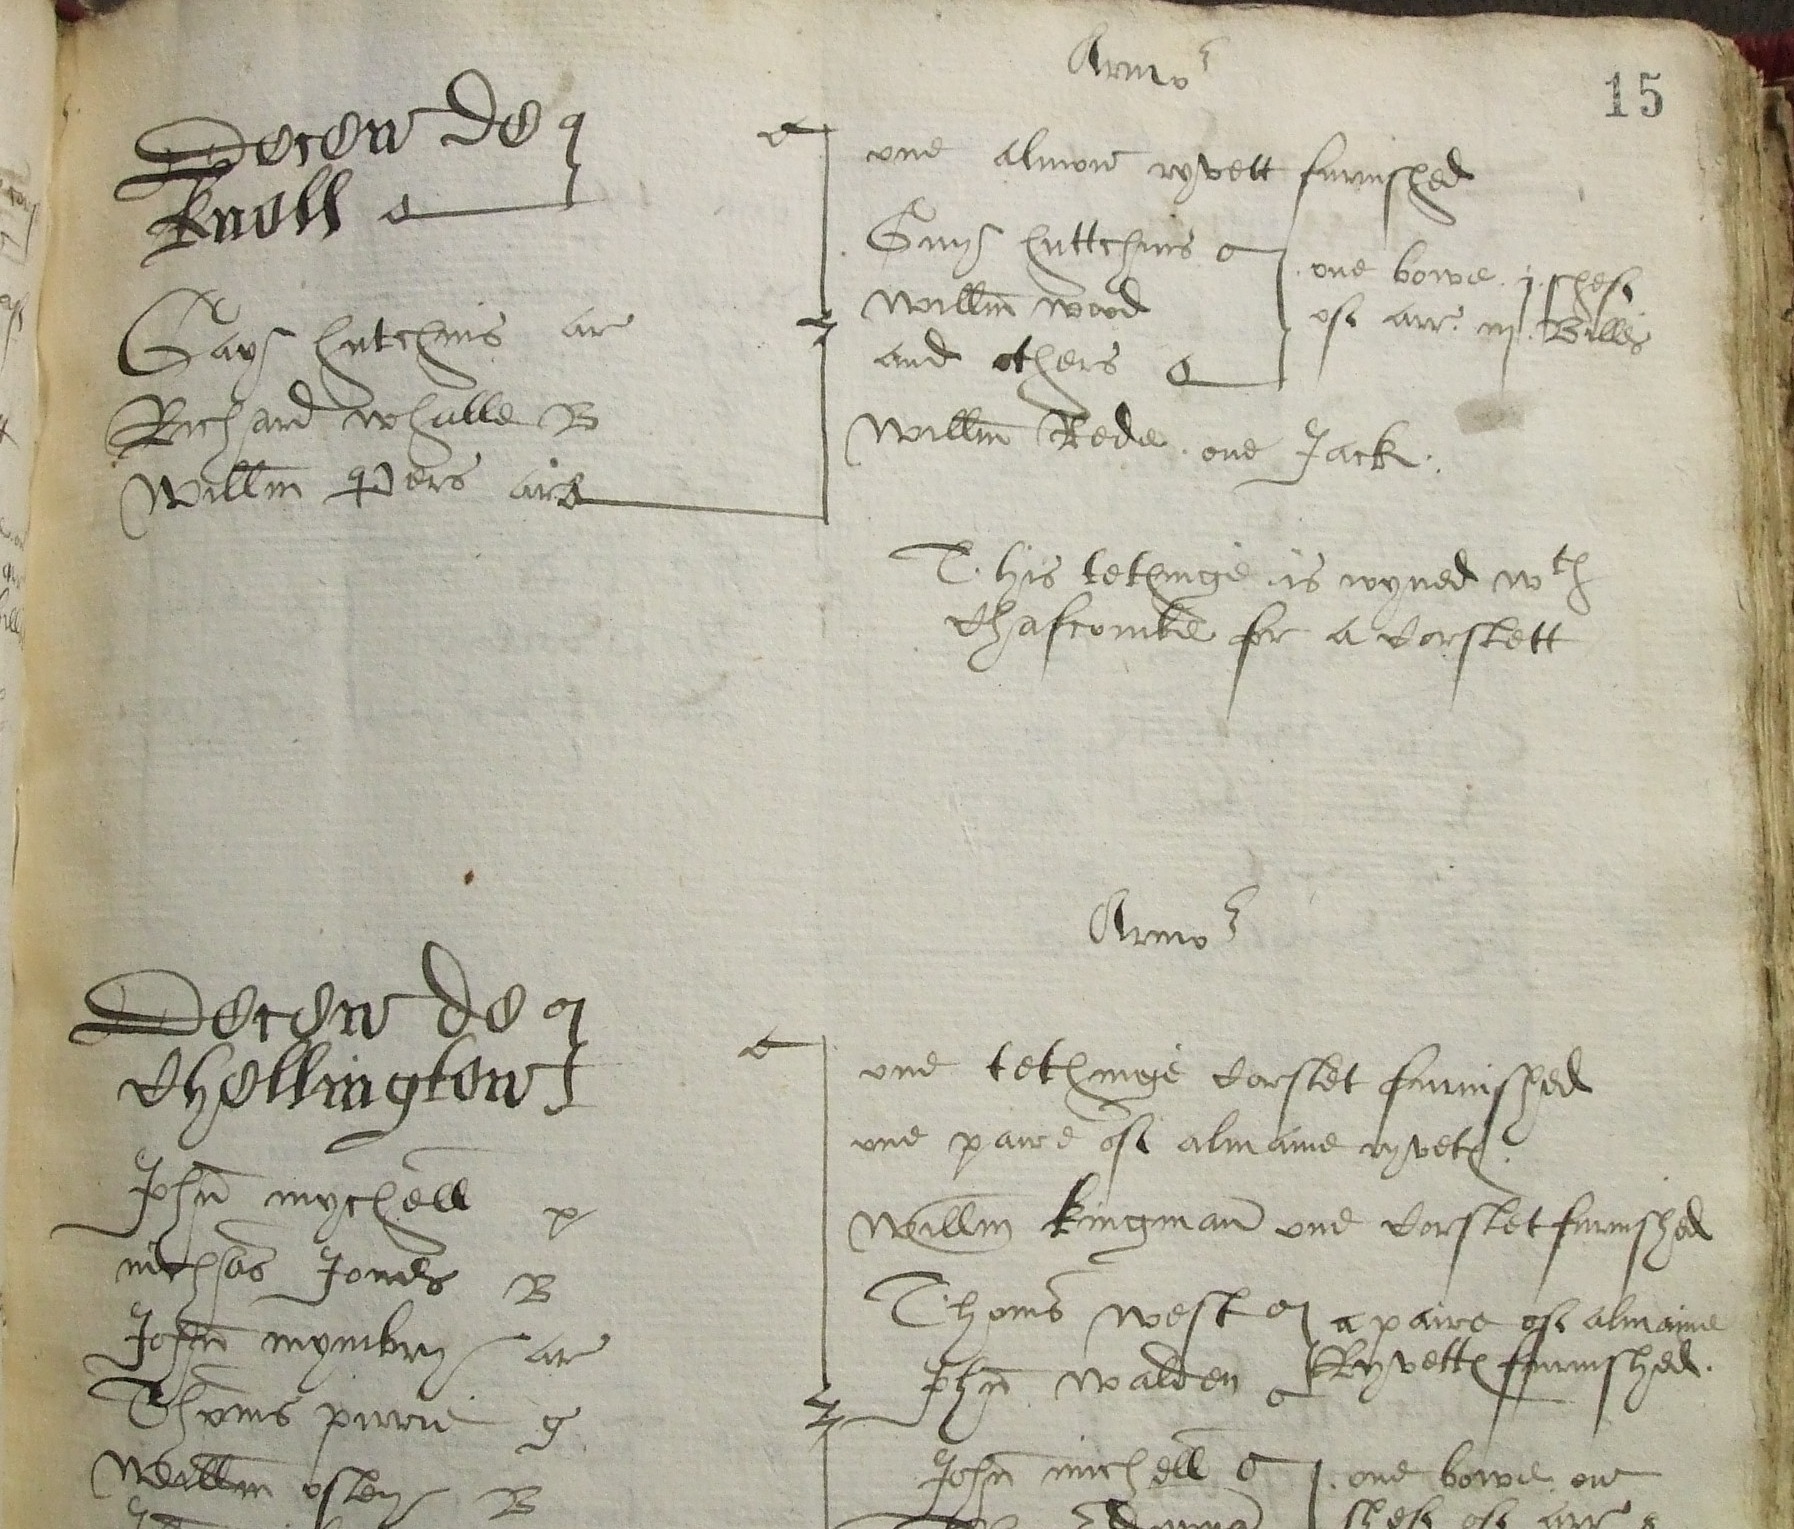 15
Armor
Decen de
Knoll
Guy hutchins ar
Richard whalle B
Willm Pers ar
one almon ryvett furnished
Guy huttchins
Willm wood
and others
one bowe . j . shef
of arr. iij . Billes
Willm Rede . one Jack .
This tethinge is ioyned wth
Chafcombe for a corslett
Armor
Decen de
Chellington
John mychell p
nichas Jones B
John mymbry ar
Thoms g
Willm osley B
one tethinge corslet furnished
one paire of almaine ryvett
Willm kingman one corslet furnished
Thoms west
John walden
a paire of almaine
Ryvett furnished .
John michell
one bowe one
shef of arr